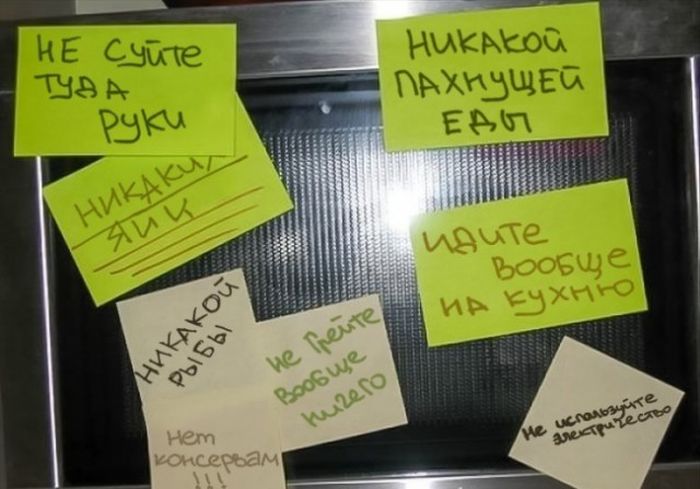 НЕ СУЙТЕ
ТУДА
РУКИ
НИКАКОЙ
ПАХНУЩЕЙ
ЕДЫ
НИКАКИХ
ЯИЦ
ИДИТЕ
ВООБЩЕ
НА КУХНЮ
НИКАКОЙ
РЫБЫ
не грейте
вообще
ничего
Нет
консервам
!!!
Не используйте
электричество